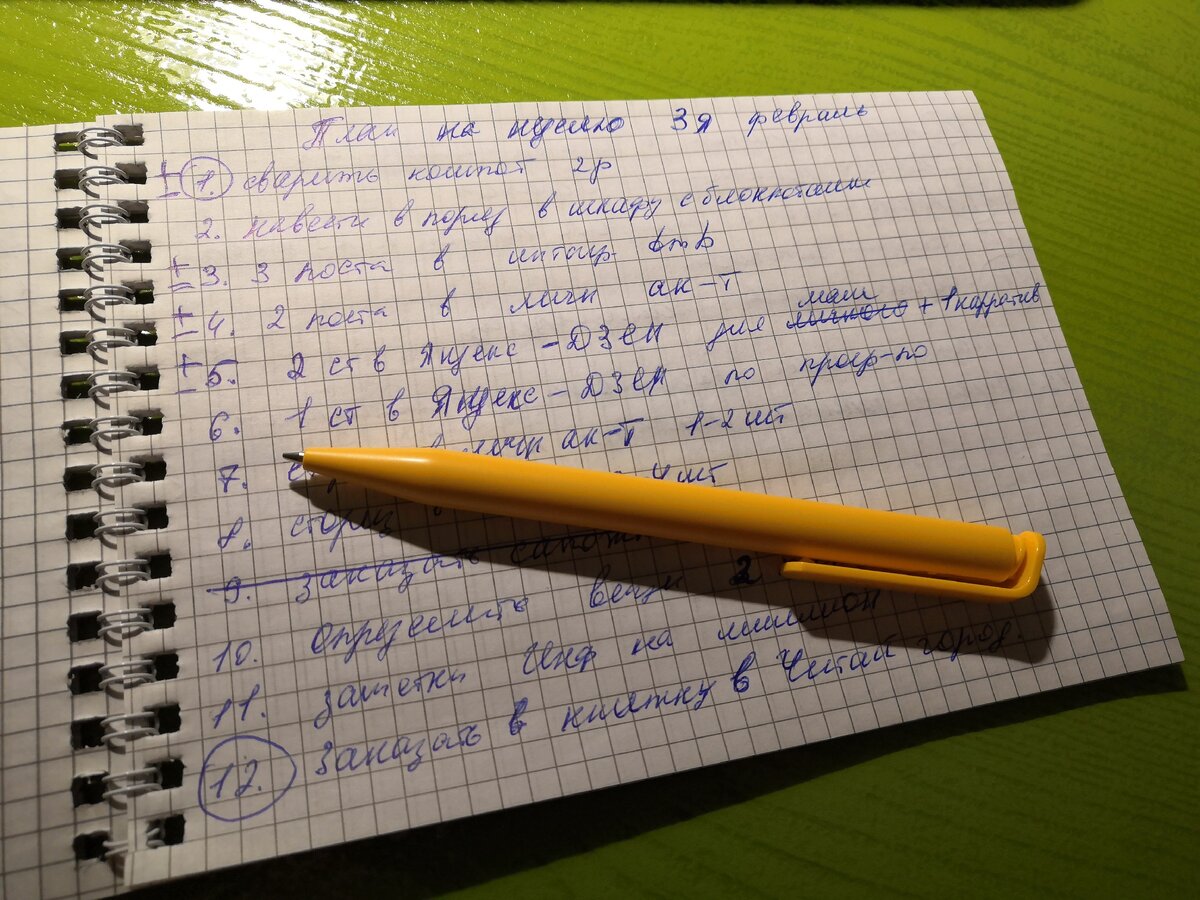 План на неделю 3я февраль
± 1. сварить компот 2р
2. навести в поряд в шкафу с блокнотами
± 3. 3 поста в
± 4. 2 поста в личн ак-т
± 5. 2 ст в Яндекс-ДЗЕН для личного маш + 1 нарратив
6. 1 ст в Яндекс-ДЗЕН по
7. ак-т 1-2 шт
8. сториз 4 шт
9. Заказать
10. Определить вещи 2
11. Заметки Инф на миллион
12. Заказать в книжку в Читай город.